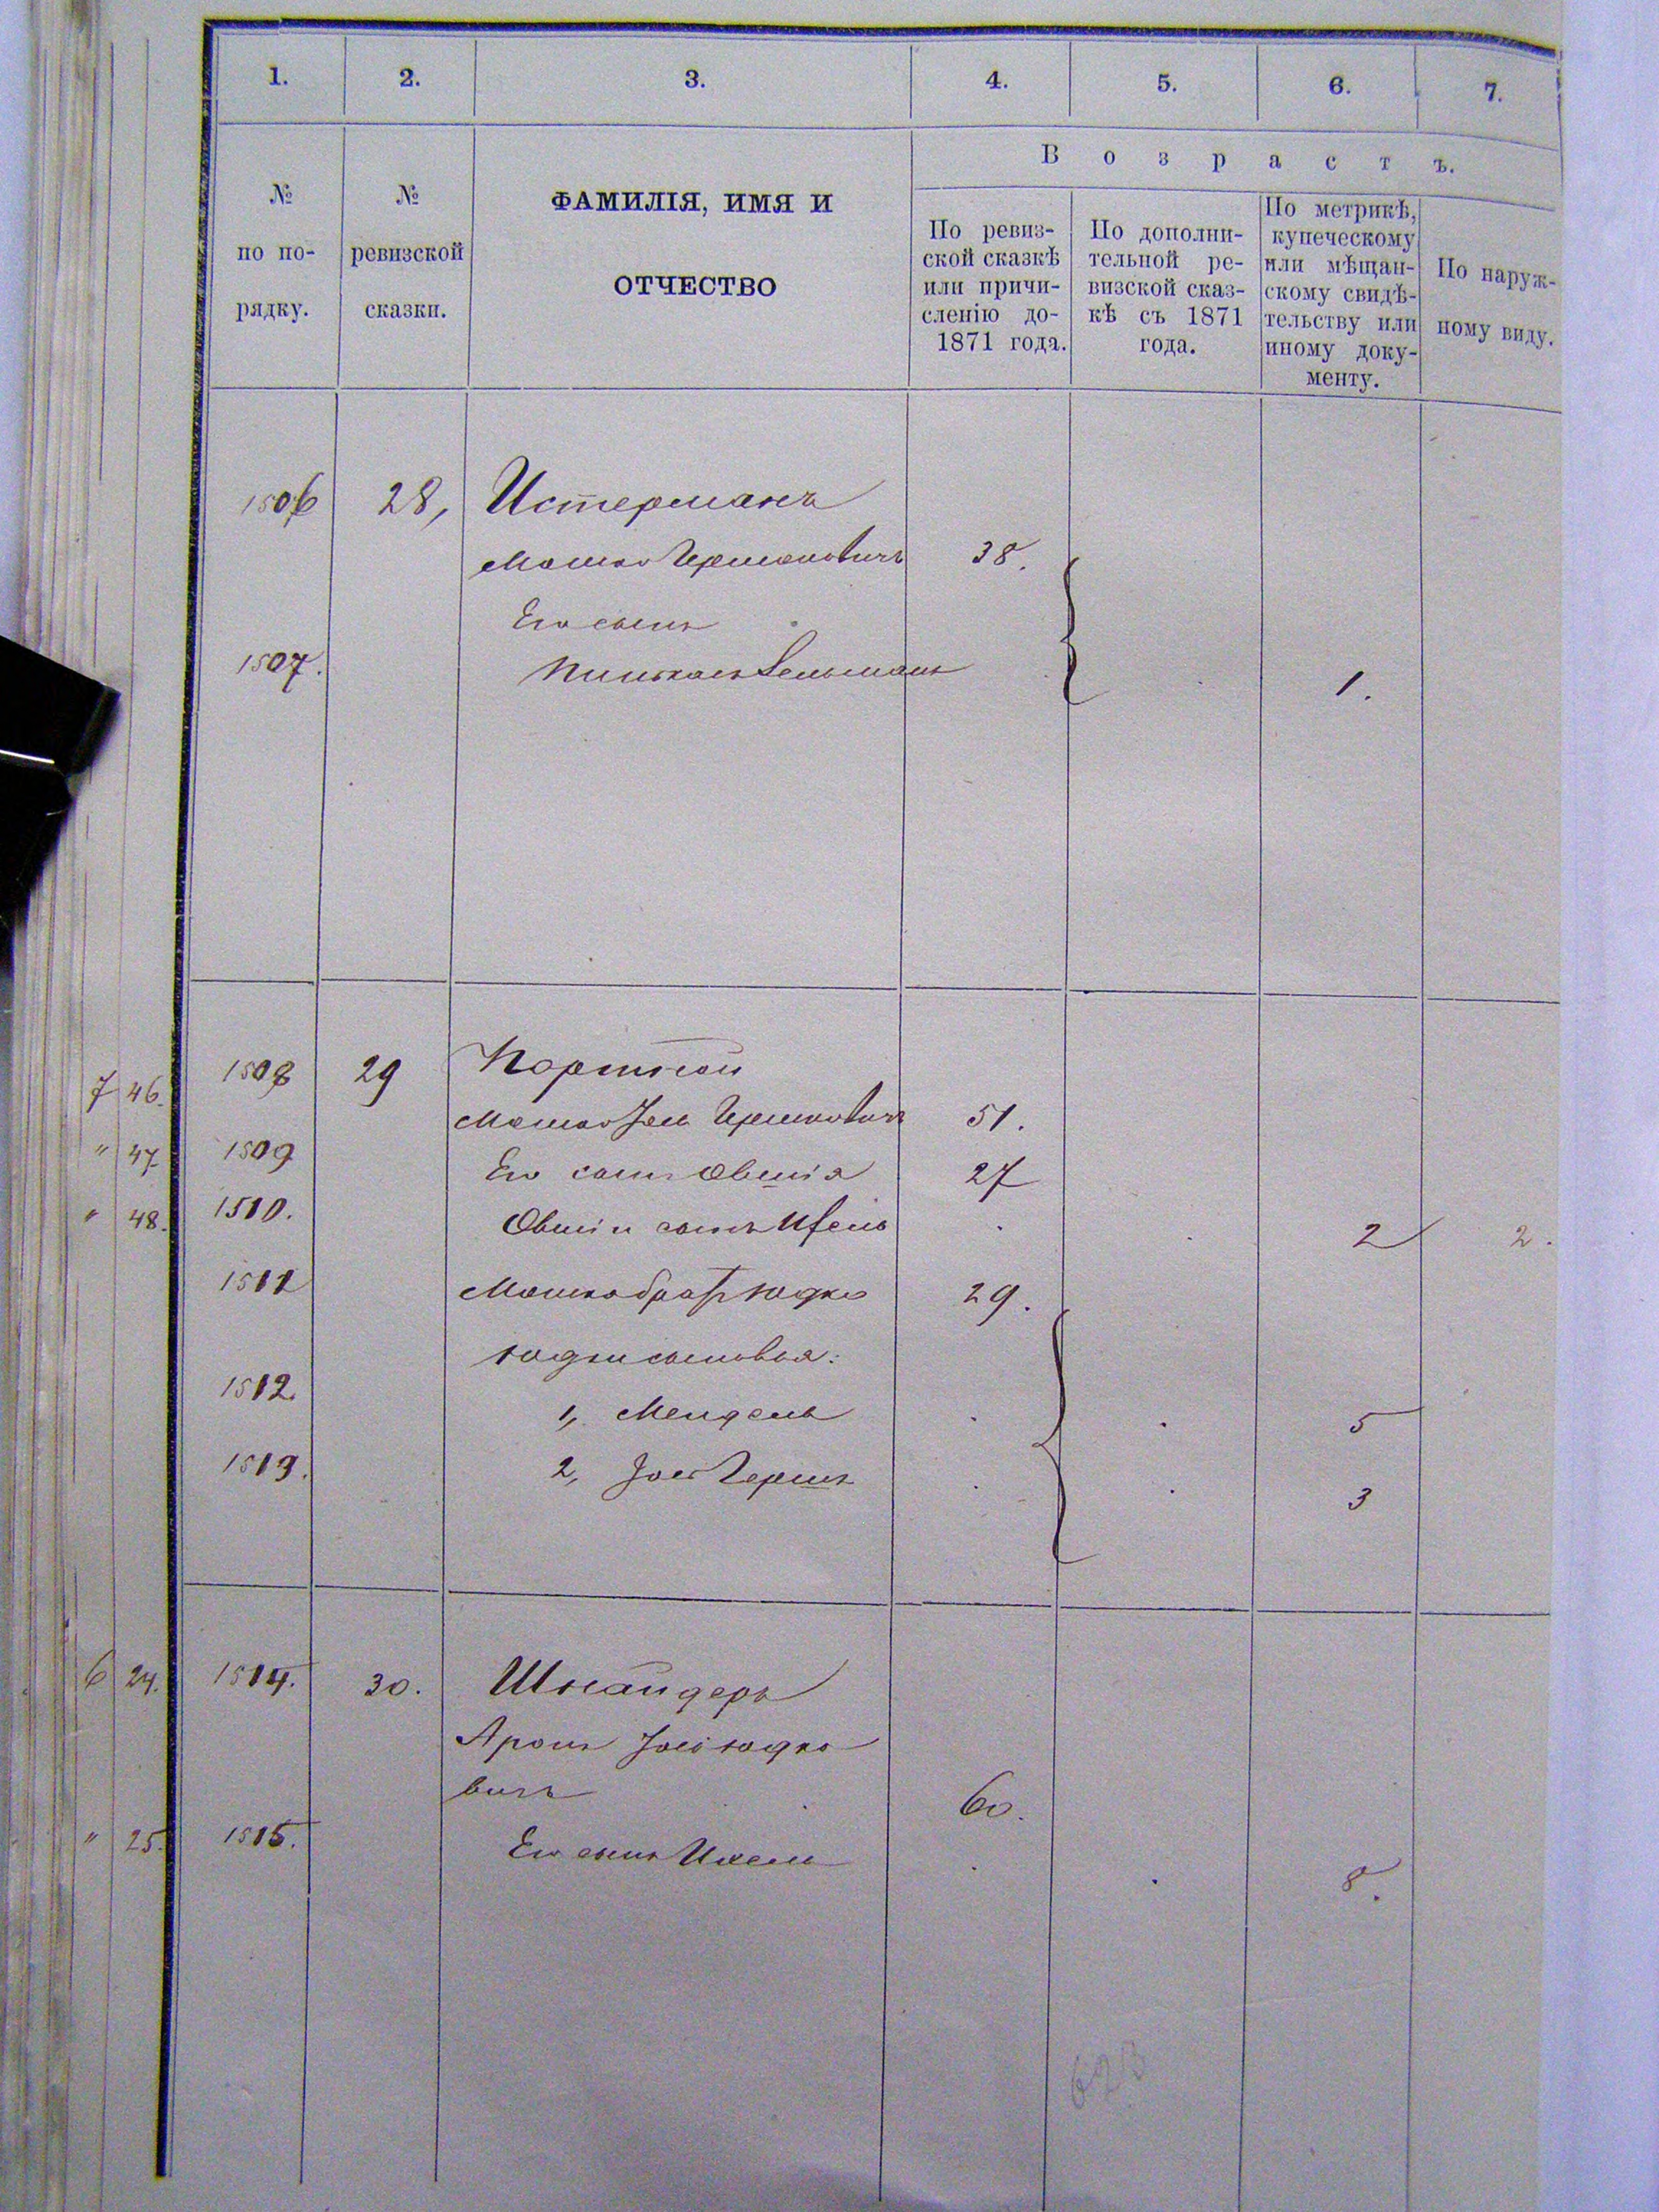 1. 2. 3. 4. 5. 6. 7.
№ по по- рядку.
№ ревизской сказки.
ФАМИЛІЯ, ИМЯ И
ОТЧЕСТВО
Возрастъ.
По ревиз-
ской сказкѣ
или причи-
сленію до-
1871 года.
По дополни-
тельной ре-
визской сказ-
кѣ съ 1871
года.
По метрикѣ,
купеческому
или мѣщан-
скому свидѣ-
тельству или
иному доку-
менту.
По наруж-
ному виду.
1506 28, Истерманъ
Мошко Гершковичъ 38.
Его сынъ
1507. Пинхасъ Зельманъ 1.
7 46. 1508 29 Портной
Мошко Іель Гершковичъ 51.
" 47. 1509 Его сынъ Овшія 27
" 48. 1510. Овшіи сынъ 2 2.
1511 Мошка братъ Юдко 29.
Юдки сыновья:
1512. 1, Мендель 5
1513. 2, Гершъ 3
6 24. 1514. 30. Шнайдеръ
Аронъ Юдко
вичъ 60.
" 25. 1515. Его сынъ Ихель 8.
623